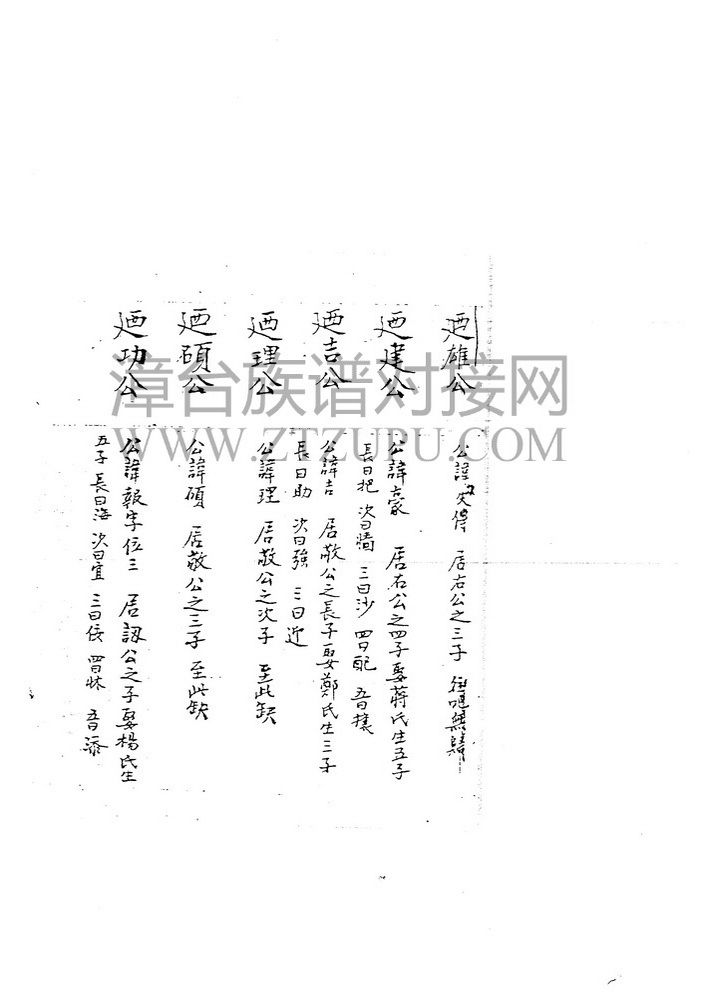 廼雄公
公諱 居右公之三子 往 無歸
廼建公
公諱豪 居右公之四子娶蔣氏生五子
長曰把 次曰 三曰沙 四曰配 五曰攘
廼吉公
公諱吉 居敬公之長子娶鄭氏生三子
長曰助 次曰強 三曰近
廼理公
公諱理 居敬公之次子 至此缺
廼碩公
公諱碩 居敬公之三子 至此缺
廼功公
公諱報字位三 居認公之子娶楊氏生
五子 長曰海 次曰宜 三曰佞 四曰 五曰添
漳台族谱对接网
WWW.ZTZUPU.COM